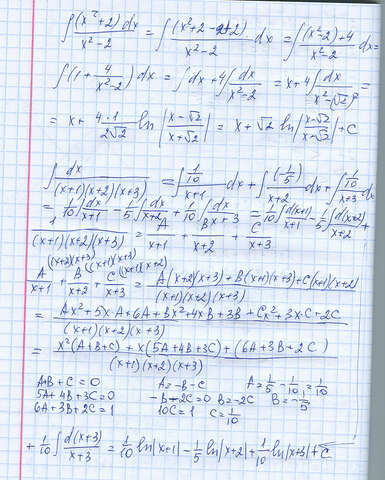 ∫ (x²+2)dx / (x²-2) = ∫ (x²+2-2+2) / (x²-2) dx = ∫ (x²-2)+4 / (x²-2) dx =
∫ (1 + 4/(x²-2)) dx = ∫ dx + 4∫ dx/(x²-2) = x + 4∫ dx/(x²-√2)² =
= x + 4·1/(2√2) ln |(x-√2)/(x+√2)| = x + √2 ln |(x-√2)/(x+√2)| + C
∫ dx / ((x+1)(x+2)(x+3)) = ∫ (1/10)/(x+1) dx + ∫ (-1/5)/(x+2) dx + ∫ (1/10)/(x+3) dx
= 1/10 ∫ dx/(x+1) - 1/5 ∫ dx/(x+2) + 1/10 ∫ dx/(x+3) = 1/10 ∫ d(x+1)/(x+1) - 1/5 ∫ d(x+2)/(x+2) +
1 / ((x+1)(x+2)(x+3)) = A/(x+1) + B/(x+2) + C/(x+3)
(x+2)(x+3) (x+1)(x+3) (x+1)(x+2)
A/(x+1) + B/(x+2) + C/(x+3) = A(x+2)(x+3)+B(x+1)(x+3)+C(x+1)(x+2) / (x+1)(x+2)(x+3)
= Ax²+5xA+6A+Bx²+4xB+3B+Cx²+3x·C+2C / (x+1)(x+2)(x+3)
= x²(A+B+C)+x(5A+4B+3C)+(6A+3B+2C) / (x+1)(x+2)(x+3)
A+B+C=0 A=-B-C A=1/5-1/10=1/10
5A+4B+3C=0 -B-2C=0 B=-2C B=-1/5
6A+3B+2C=1 10C=1 C=1/10
+ 1/10 ∫ d(x+3)/(x+3) = 1/10 ln|x+1| - 1/5 ln|x+2| + 1/10 ln|x+3| + C